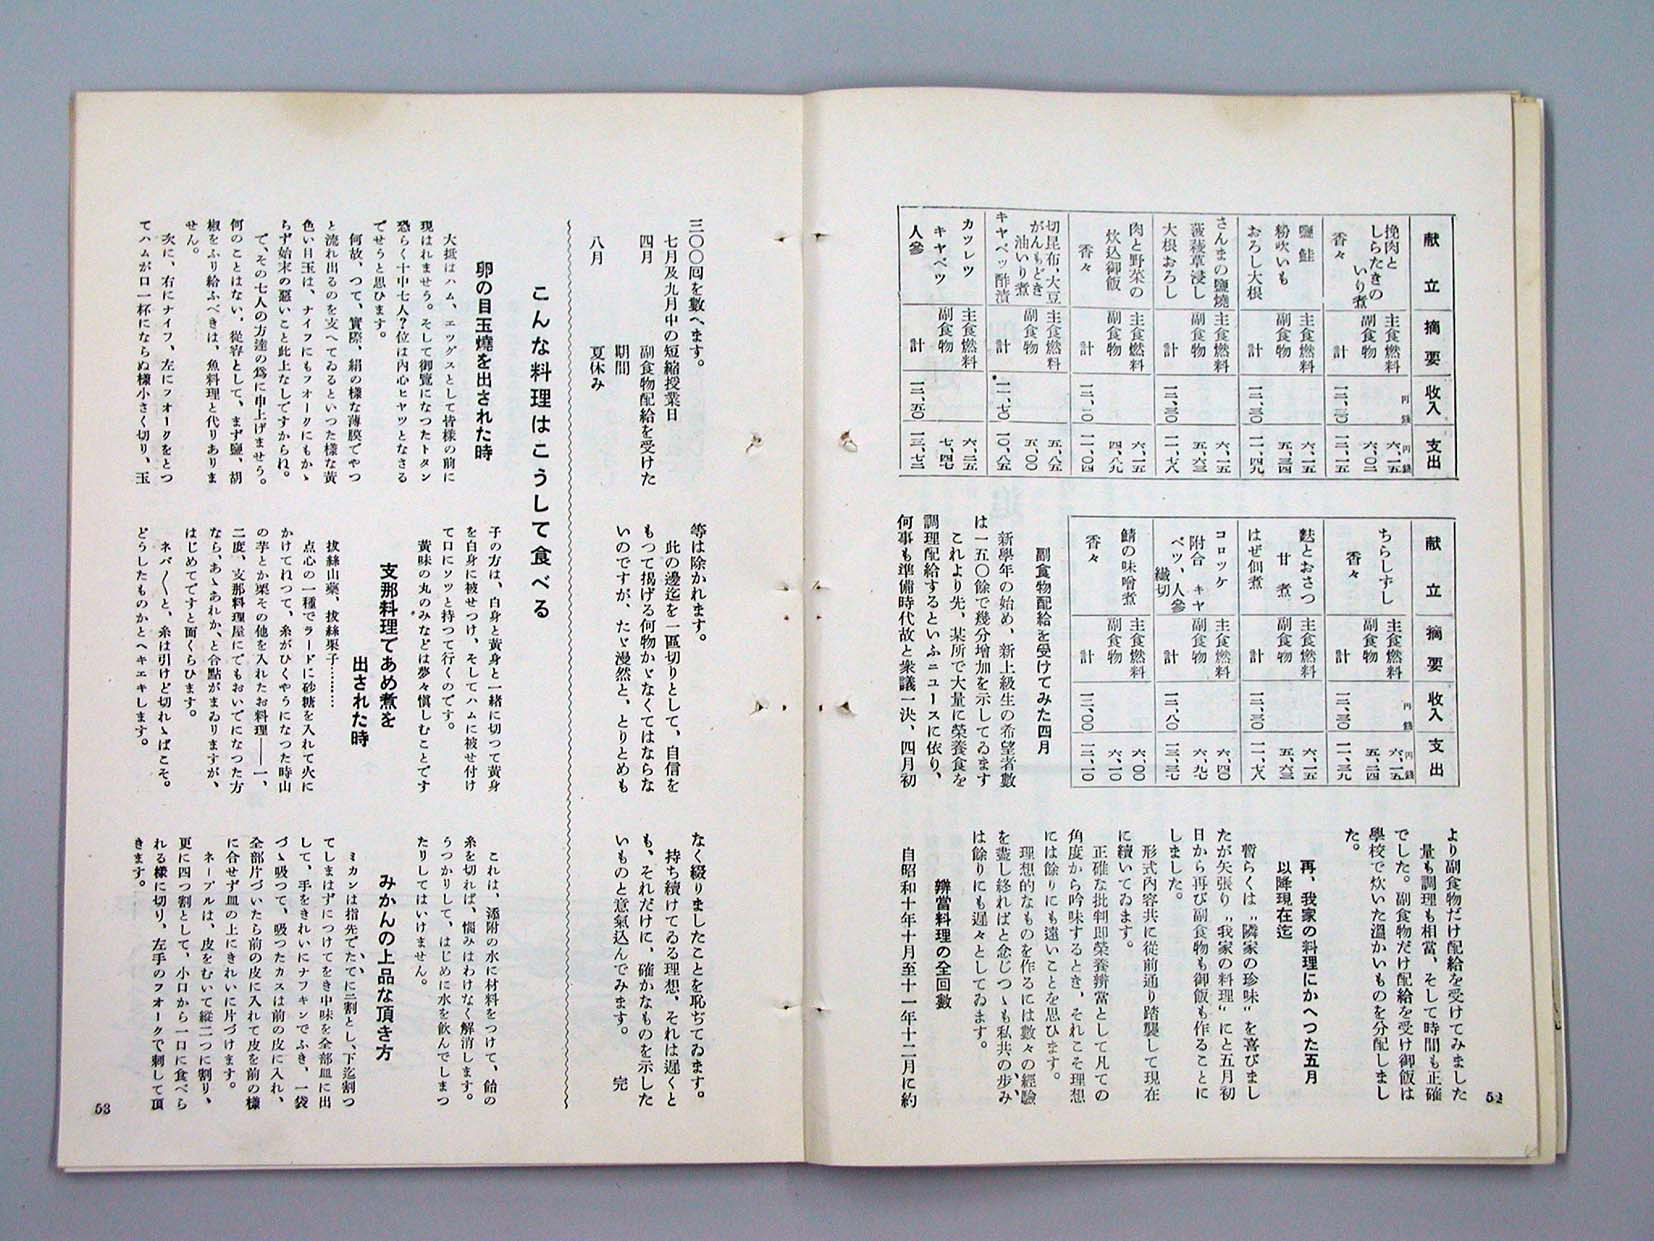 献立
摘要
收入
支出
挽肉と
しらたきの
いり煮
香々
主食燃料
副食物
計
円 錢
一二、二〇
円 錢
六、一五
六、〇二
一二、一五
鹽鮭
粉吹いも
おろし大根
主食燃料
副食物
計
一二、三〇
六、一五
五、三四
一一、四九
さんまの鹽燒
菠薐草浸し
大根おろし
主食燃料
副食物
計
一二、三〇
六、一五
五、六三
一一、七八
肉と野菜の
炊込御飯
香々
主食燃料
副食物
計
一二、一〇
六、一五
四、八九
一一、〇四
切昆布、大豆
がんもどき
油いり煮
キヤベツ酢漬
主食燃料
副食物
計
一一、七〇
五、八五
五、〇〇
一〇、八五
カツレツ
キヤベツ
人參
主食燃料
副食物
計
一二、五〇
六、二五
七、四七
一三、七二
献立
摘要
收入
支出
ちらしすし
香々
主食燃料
副食物
計
円 錢
一二、三〇
円 錢
六、一五
五、二四
一一、三九
麩とおさつ
甘煮
はぜ佃煮
主食燃料
副食物
計
一二、三〇
六、一五
五、六三
一一、七八
コロッケ
附合 キヤ
ベツ、人參
纎切
主食燃料
副食物
計
一二、八〇
六、四〇
六、九七
一三、三七
鯖の味噌煮
香々
主食燃料
副食物
計
一二、〇〇
六、〇〇
六、一〇
一二、一〇
副食物配給を受けてみた四月
新學年の始め、新上級生の希望者數
は一五〇餘で幾分增加を示してゐます
これより先、某所で大量に榮養食を
調理配給するといふニュースに依り、
何事も準備時代故と衆議一決、四月初
より副食物だけ配給を受けてみました
量も調理も相當、そして時間も正確
でした。副食物だけ配給を受け御飯は
學校で炊いた溫かいものを分配しまし
た。
再、我家の料理にかへつた五月
以降現在迄
暫らくは〝隣家の珍味〟を喜びまし
たが矢張り〝我家の料理〟にと五月初
日から再び副食物も御飯も作ることに
しました。
形式內容共に從前通り踏襲して現在
に續いてゐます。
正確な批判卽榮養辨當として凡ての
角度から吟味するとき、それこそ理想
には餘りにも遠いことを思ひます。
理想的なものを作るには數々の經驗
を盡し終ればと念じつゝも私共の歩み
は餘りにも遲々としてゐます。
辨當料理の全回數
自昭和十年十月至十一年十二月に約
52
三〇〇回を數へます。
七月及九月中の短縮授業日
四月 副食物配給を受けた
期間
八月 夏休み
等は除かれます。
此の邊迄を一區切りとして、自信を
もつて揭げる何物かゞなくてはならな
いのですが、たゞ漫然と、とりとめも
なく綴りましたことを恥ぢてゐます。
持ち續けてゐる理想、それは遲くと
も、それだけに、確かなものを示した
いものと意氣込んでみます。 完
こんな料理はこうして食べる
卵の目玉燒を出された時
大抵はハム、エツグスとして皆樣の前に
現はれませう。そして御覽になつたトタン
恐らく十中七人？位は內心ヒヤツとなさる
でせうと思ひます。
何故、つて、實際、絹の樣な薄膜でやつ
と流れ出るのを支へてゐるといつた樣な黃
色い目玉は、ナイフにもフオークにもかゝ
らず始末の惡いこと此上なしですからね。
で、その七人の方達の爲に申上げませう。
何のことはない、從容として、まず鹽、胡
椒をふり給ふべきは、魚料理と代りありま
せん。
次に、右にナイフ、左にフオークをとつ
てハムが口一杯にならぬ樣小さく切り、玉
子の方は、白身と黃身と一緒に切つて黃身
を白身に被せつけ、そしてハムに被せ付け
て口にソツと持つて行くのです。
黃味の丸のみなどは夢々愼しむことです
支那料理であめ煮を
出された時
拔絲山藥、拔絲栗子………
點心の一種でラードに砂糖を入れて火に
かけてねつて、糸がひくやうになつた時山
の芋とか栗その他を入れたお料理——一、
二度、支那料理屋にでもおいでになつた方
なら、あゝあれか、と合點がまゐりますが、
はじめてですと面くらひます。
ネバ〱と、糸は引けど切れゝばこそ。
どうしたものかとヘキエキします。
これは、添附の水に材料をつけて、飴の
糸を切れば、惱みはわけなく解消します。
うつかりして、はじめに水を飲んでしまつ
たりしてはいけません。
みかんの上品な頂き方
ミカンは指先でたてに二割とし、下迄割つ
てしまはずにつけてをき中味を全部皿に出
して、手をきれいにナフキンでふき、一袋
づゝ吸つて、吸つたカスは前の皮に入れ、
全部片づいたら前の皮に入れて皮を前の樣
に合せず皿の上にきれいに片づけます。
ネーブルは、皮をむいて縱二つに割り、
更に四つ割として、小口から一口に食べら
れる樣に切り、左手のフオークで刺して頂
きます。
53